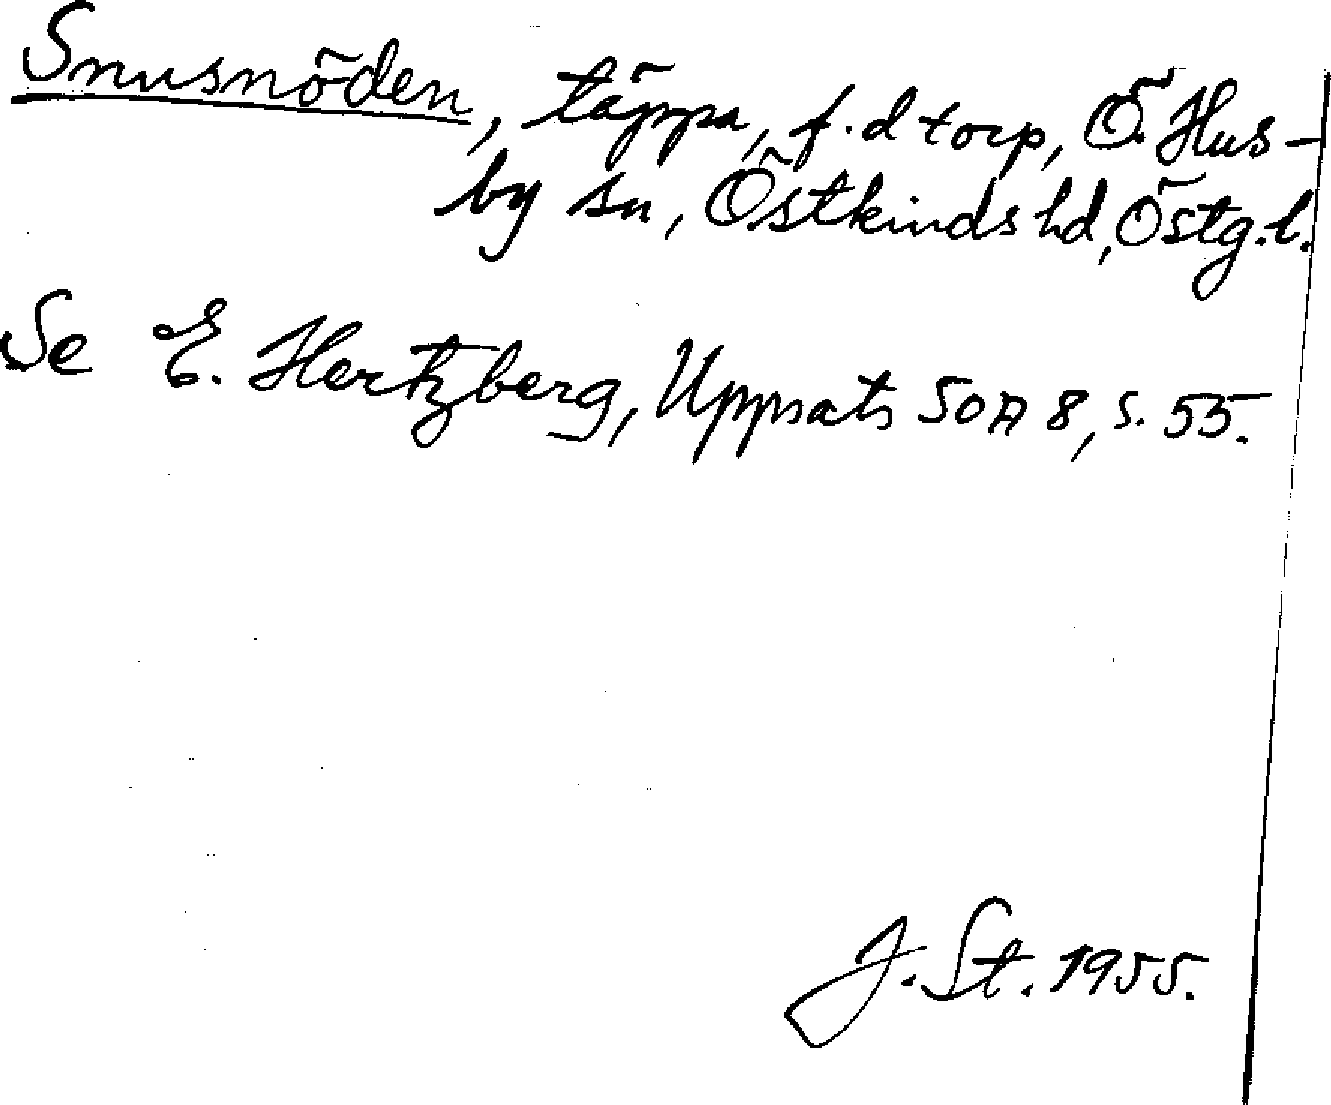 Snusnöden, täppa, f.d torp, Ö. Hus-
by sn, Östkinds hd, Östg.l.
Se E. Hertzberg, Uppsats SOA 8, s. 55.
J. St. 1955.